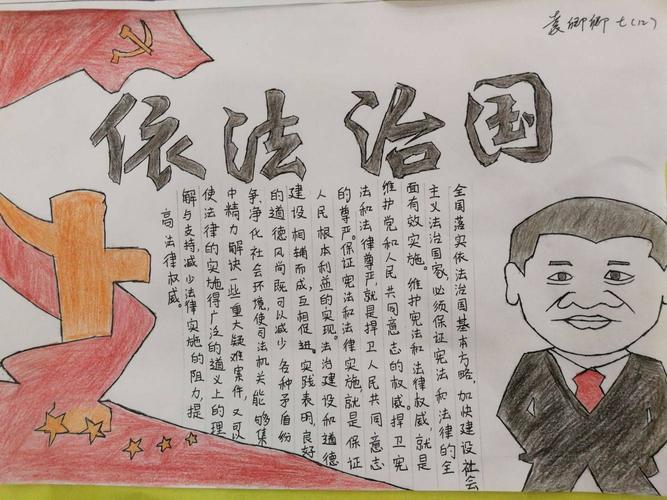 袁卿卿 七(12)
依法治国
全国落实依法治国基本方略,加快建设社会
主义法治国家,必须保证宪法和法律的全
面有效实施。维护宪法和法律权威,就是
维护党和人民共同意志的权威。捍卫宪
法和法律尊严,就是捍卫人民共同意志
的尊严。保证宪法和法律实施就是保证
人民根本利益的实现。法治建设和道德
建设相辅而成,互相促进。实践表明,良好
的道德风尚既可以减少各种矛盾纷
争,净化社会环境,使司法机关能够集
中精力解决一些重大疑难案件,又可
使法律的实施得广泛的道义上的理
解与支持,减少法律实施的阻力,提
高法律权威。